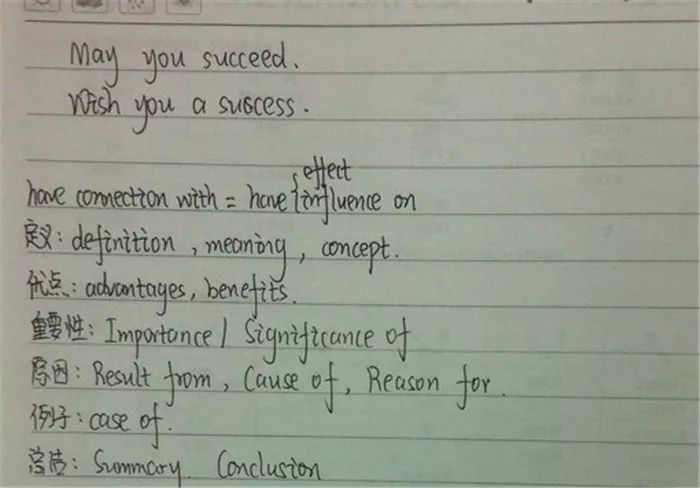 May you succeed.
Wish you a success.
effect
have connection with = have { influence on
定义: definition, meaning, concept.
优点: advantages, benefits.
重要性: Importance / Significance of
原因: Result from, Cause of, Reason for.
例子: case of.
总结: Summary. Conclusion